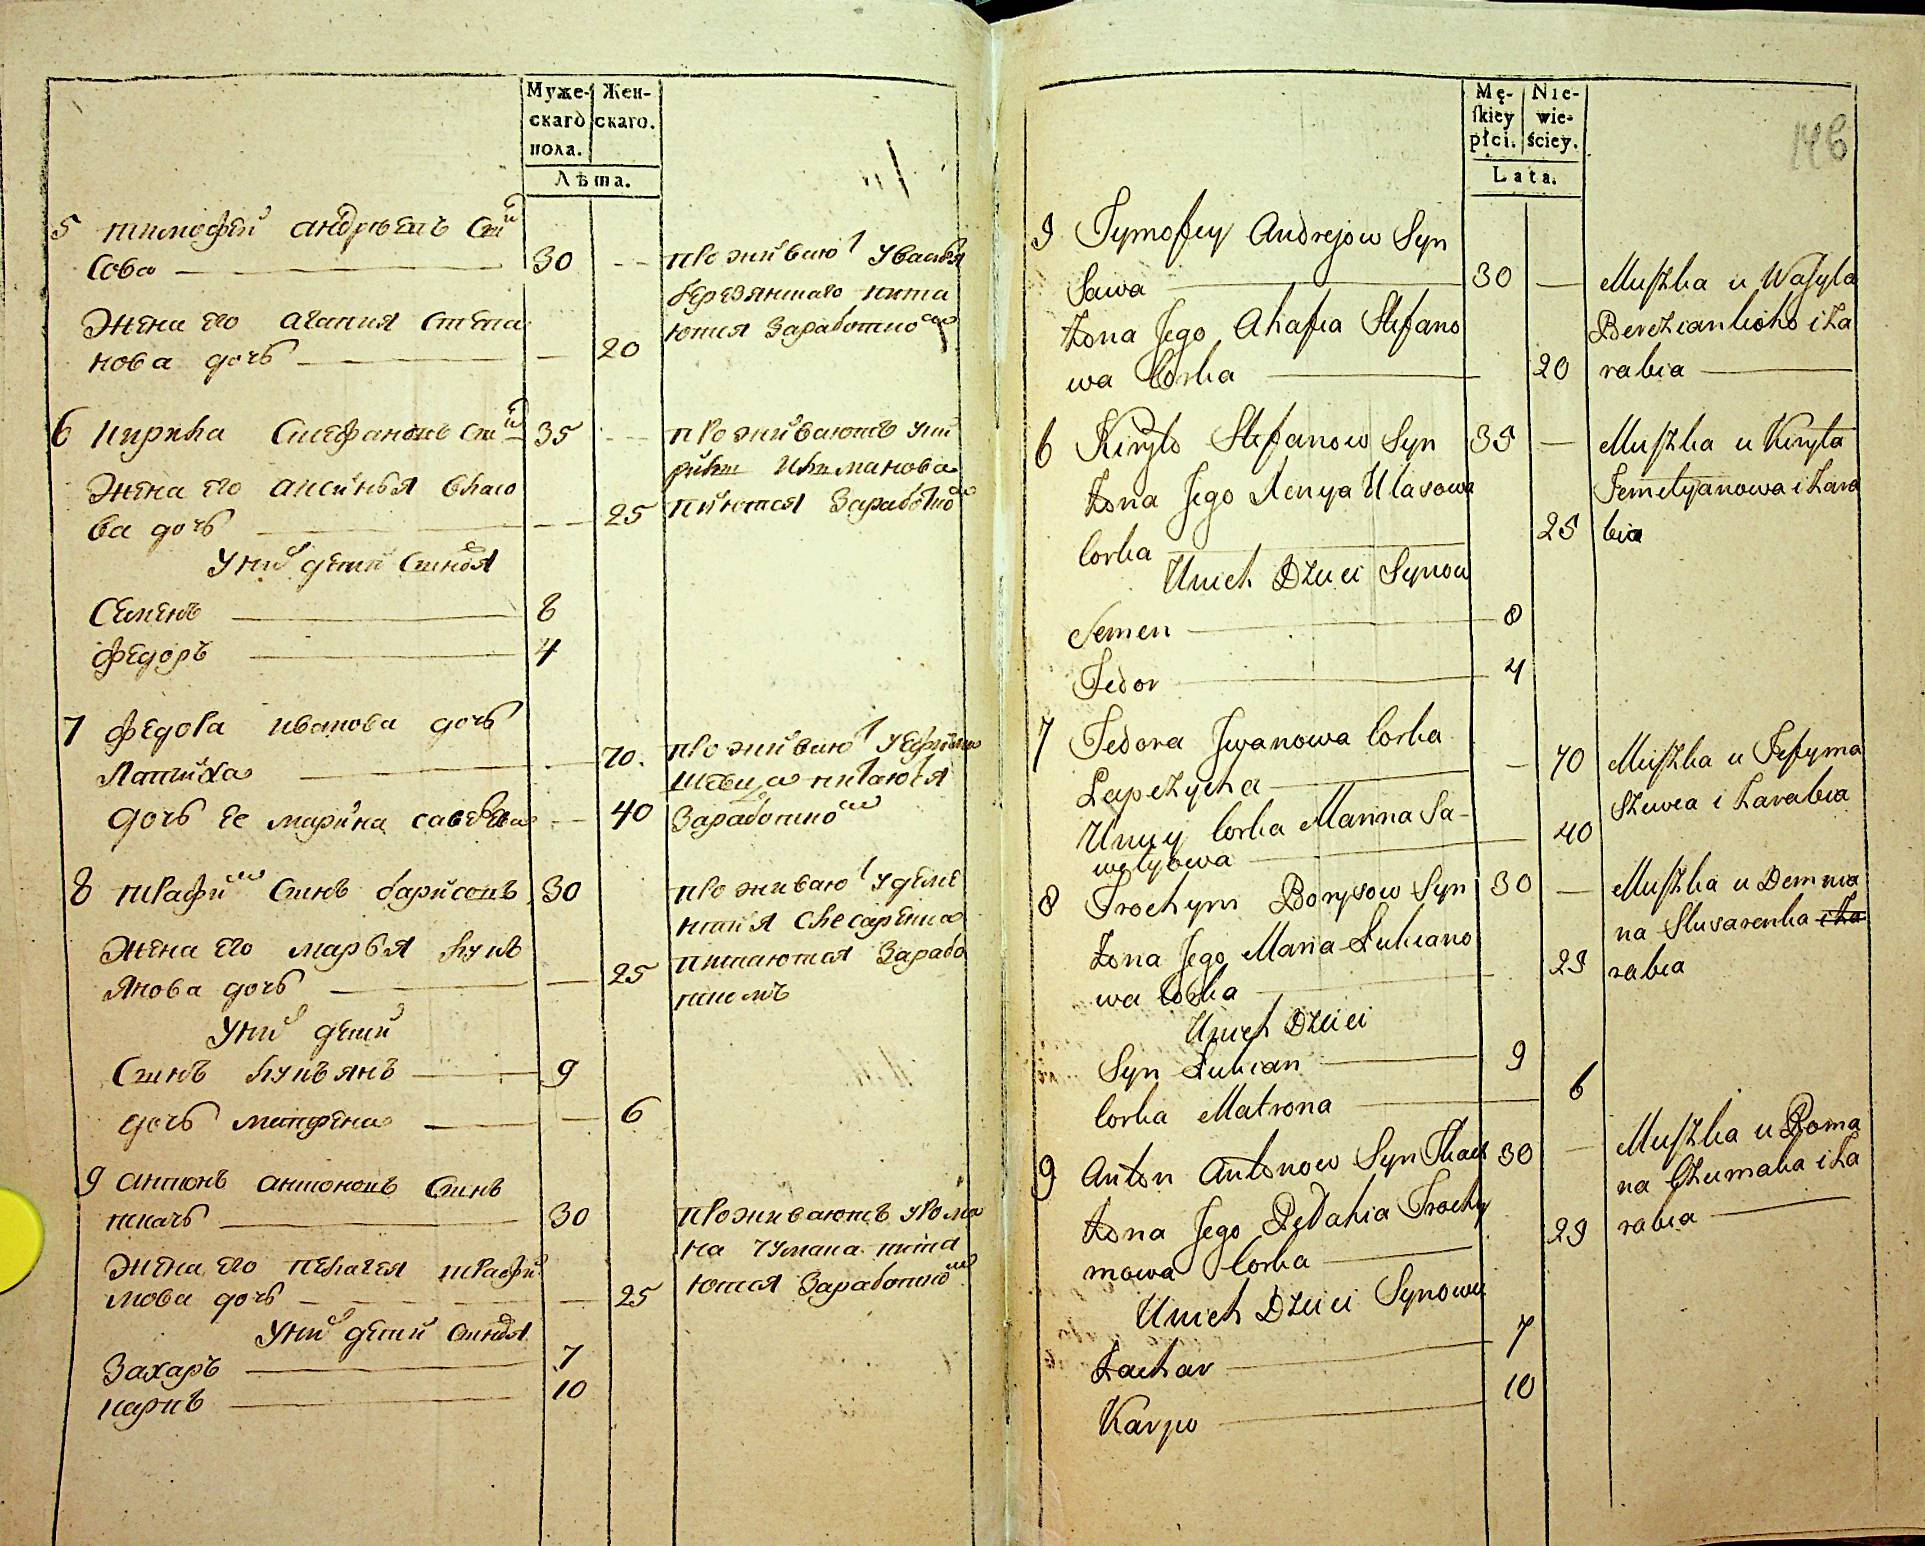 Муже-
скаго
пола.
Жен-
скаго.
Лѣта.
5 тимофей андрѣевъ сы
Сова
30
проживаю у васыля
березянскаго пита
ются Заработко
Жена его агапия степа
нова дочь
20
6 кирила Стефановъ сы
35
проживаютъ уки
рили
питаются Заработко
Жена его аксинья власо
ва дочь
25
У ни детей сыновя
Семенъ 8
федоръ 4
7 федора иванова дочь
70.
проживаю у ефима
шевца питаются
Заработко
Лапчиха
дочь ее марина савельева
40
8 трафи сынъ барисовъ
30
проживаю у деме
нтия слесаренка
питаются Зарабо
ткомъ
Жена его марья лукъ
янова дочь
25
У ни детей
Сынъ лукъянъ 9
дочь матрена 6
9 антонъ антоновъ сынъ
ткачъ
30
проживаютъ у рома
на чумака пита
ются Заработко
Жена его пелагея трафи
мова дочь
25
У ни детей сыновя
Захаръ 7
карпъ 10
Mę-
skiey
płci.
Nie-
wie-
ściey.
Lata.
146
5 Tymofey Andrejow Syn
Sawa
30
Mieszka u Wasyla
Berezianskoho i Za
rabia
Żona Jego Ahafia Stefano
wa Corka
20
6 Kiryło Stefanow Syn
35
Mieszka u Kiryła
Jemelyanowa i Zara
bia
Żona Jego Xenya Ułasowa
Corka
25
U nich Dzieci Synow
Semen 8
Fedor 4
7 Fedora Jwanowa Corka
Łapczycha
70
Mieszka u Jefyma
Szewca i Zarabia
U niey Corka Marina Sa-
welyowa
40
8 Trochym Borysow Syn
30
Mieszka u Demian
na Slusarenka i Za
rabia
Żona Jego Maria Łukiano
wa Corka
25
U nich Dzieci
Syn Łukian 9
Corka Matrona 6
9 Anton Antonow Syn Tkacz
30
Mieszka u Roma
na Czumaka i Za
rabia
Żona Jego Pełahia Trochy
mowa Corka
25
U nich Dzieci Synowie
Zachar 7
Karpo 10